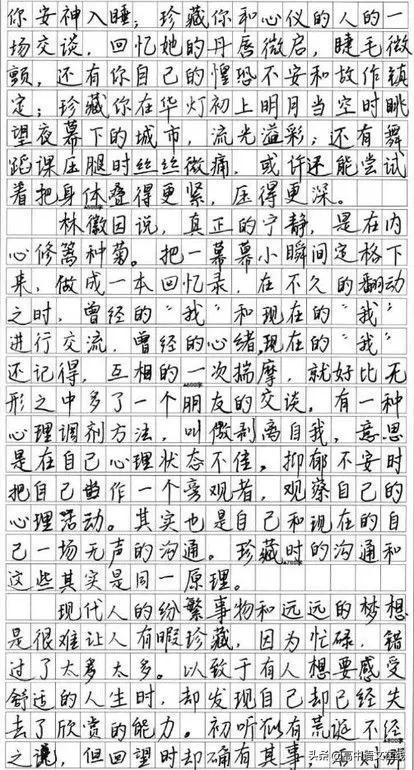 你安神入睡；珍藏你和心仪的人的一
场交谈，回忆她的丹唇微启，睫毛微
颤，还有你自己的惶恐不安和故作镇
定；珍藏你在华灯初上明月当空时眺
望夜幕下的城市，流光溢彩；还有舞
蹈课压腿时丝丝微痛，或许还能尝试
着把身体叠得更紧，压得更深。
林徽因说，真正的宁静，是在内
心修篱种菊。把一幕幕小瞬间定格下
来，做成一本回忆录，在不久的翻动
之时，曾经的“我”和现在的“我”
进行交流，曾经的心绪，现在的“我”
还记得，互相的一次揣摩，就好比无
形之中多了一个朋友的交谈。有一种
心理调剂方法，叫做剥离自我，意思
是在自己心理状态不佳，抑郁不安时
把自己当作一个旁观者，观察自己的
心理活动。其实也是自己和现在的自
己一场无声的沟通。珍藏时的沟通和
这些其实是同一原理。
现代人的纷繁事物和远远的梦想
是很难让人有暇珍藏，因为忙碌，错
过了太多太多。以致于有人想要感受
舒适的人生时，却发现自己却已经失
去了欣赏的能力。初听似有荒诞不经
之说，但回望时却确有其事。